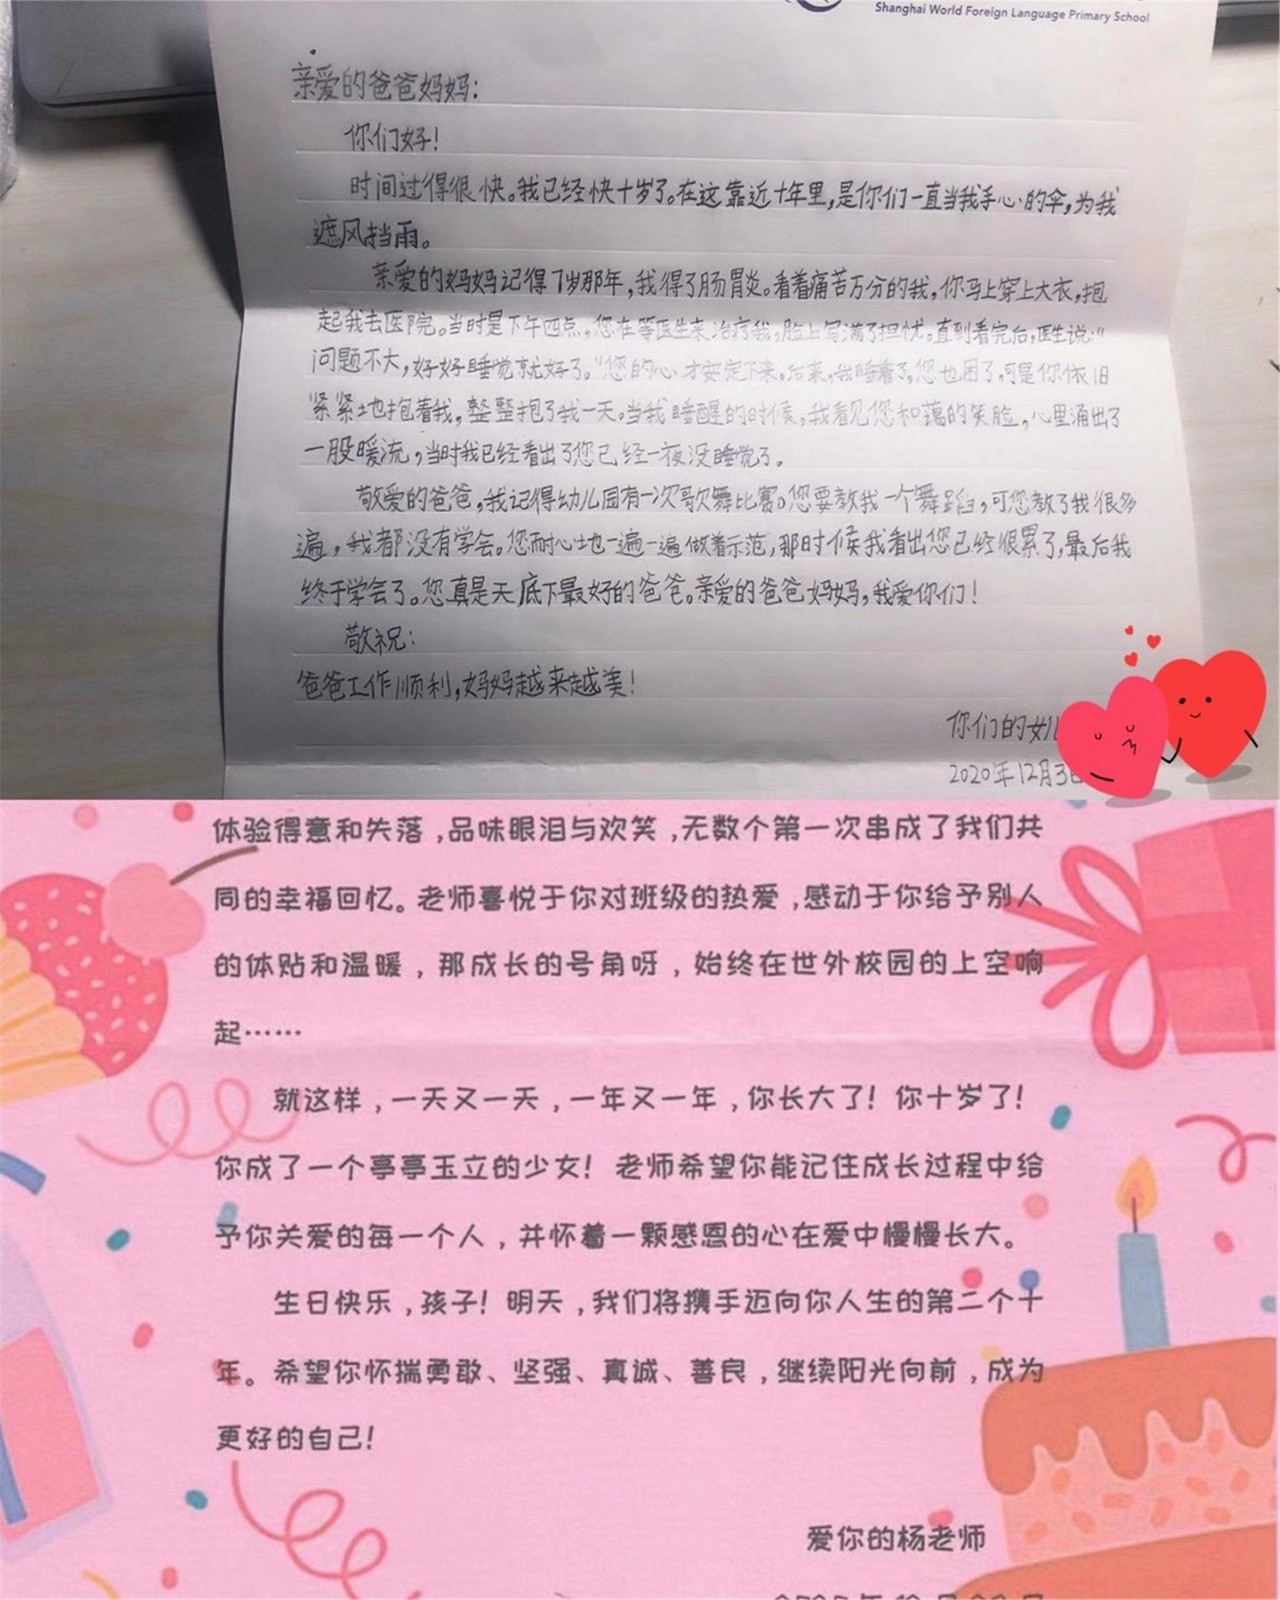 Shanghai World Foreign Language Primary School
亲爱的爸爸妈妈：
你们好！
时间过得很快。我已经快十岁了。在这靠近十年里，是你们一直当我手心的伞，为我
遮风挡雨。
亲爱的妈妈记得7岁那年，我得了肠胃炎。看着痛苦万分的我，你马上穿上大衣，抱
起我去医院。当时是下午四点，您在等医生来治疗我，脸上写满了担忧。直到看完后，医生说：“
问题不大，好好睡觉就好了。”您的心才安定下来。后来，我睡着了，您也困了，可是你依旧
紧紧地抱着我，整整抱了我一天。当我睡醒的时候，我看见您和蔼的笑脸，心里涌出了
一股暖流，当时我已经看出了您已经一夜没睡觉了。
敬爱的爸爸，我记得幼儿园有一次歌舞比赛。您要教我一个舞蹈，可您教了我很多
遍，我都没有学会。您耐心地一遍一遍做着示范，那时候我看出您已经很累了，最后我
终于学会了。您真是天底下最好的爸爸。亲爱的爸爸妈妈，我爱你们！
敬祝：
爸爸工作顺利，妈妈越来越美！
你们的女儿
2020年12月3日
体验得意和失落，品味眼泪与欢笑，无数个第一次串成了我们共
同的幸福回忆。老师喜悦于你对班级的热爱，感动于你给予别人
的体贴和温暖，那成长的号角呀，始终在世外校园的上空响
起……
就这样，一天又一天，一年又一年，你长大了！你十岁了！
你成了一个亭亭玉立的少女！老师希望你能记住成长过程中给
予你关爱的每一个人，并怀着一颗感恩的心在爱中慢慢长大。
生日快乐，孩子！明天，我们将携手迈向你人生的第二个十
年。希望你怀揣勇敢、坚强、真诚、善良，继续阳光向前，成为
更好的自己！
爱你的杨老师